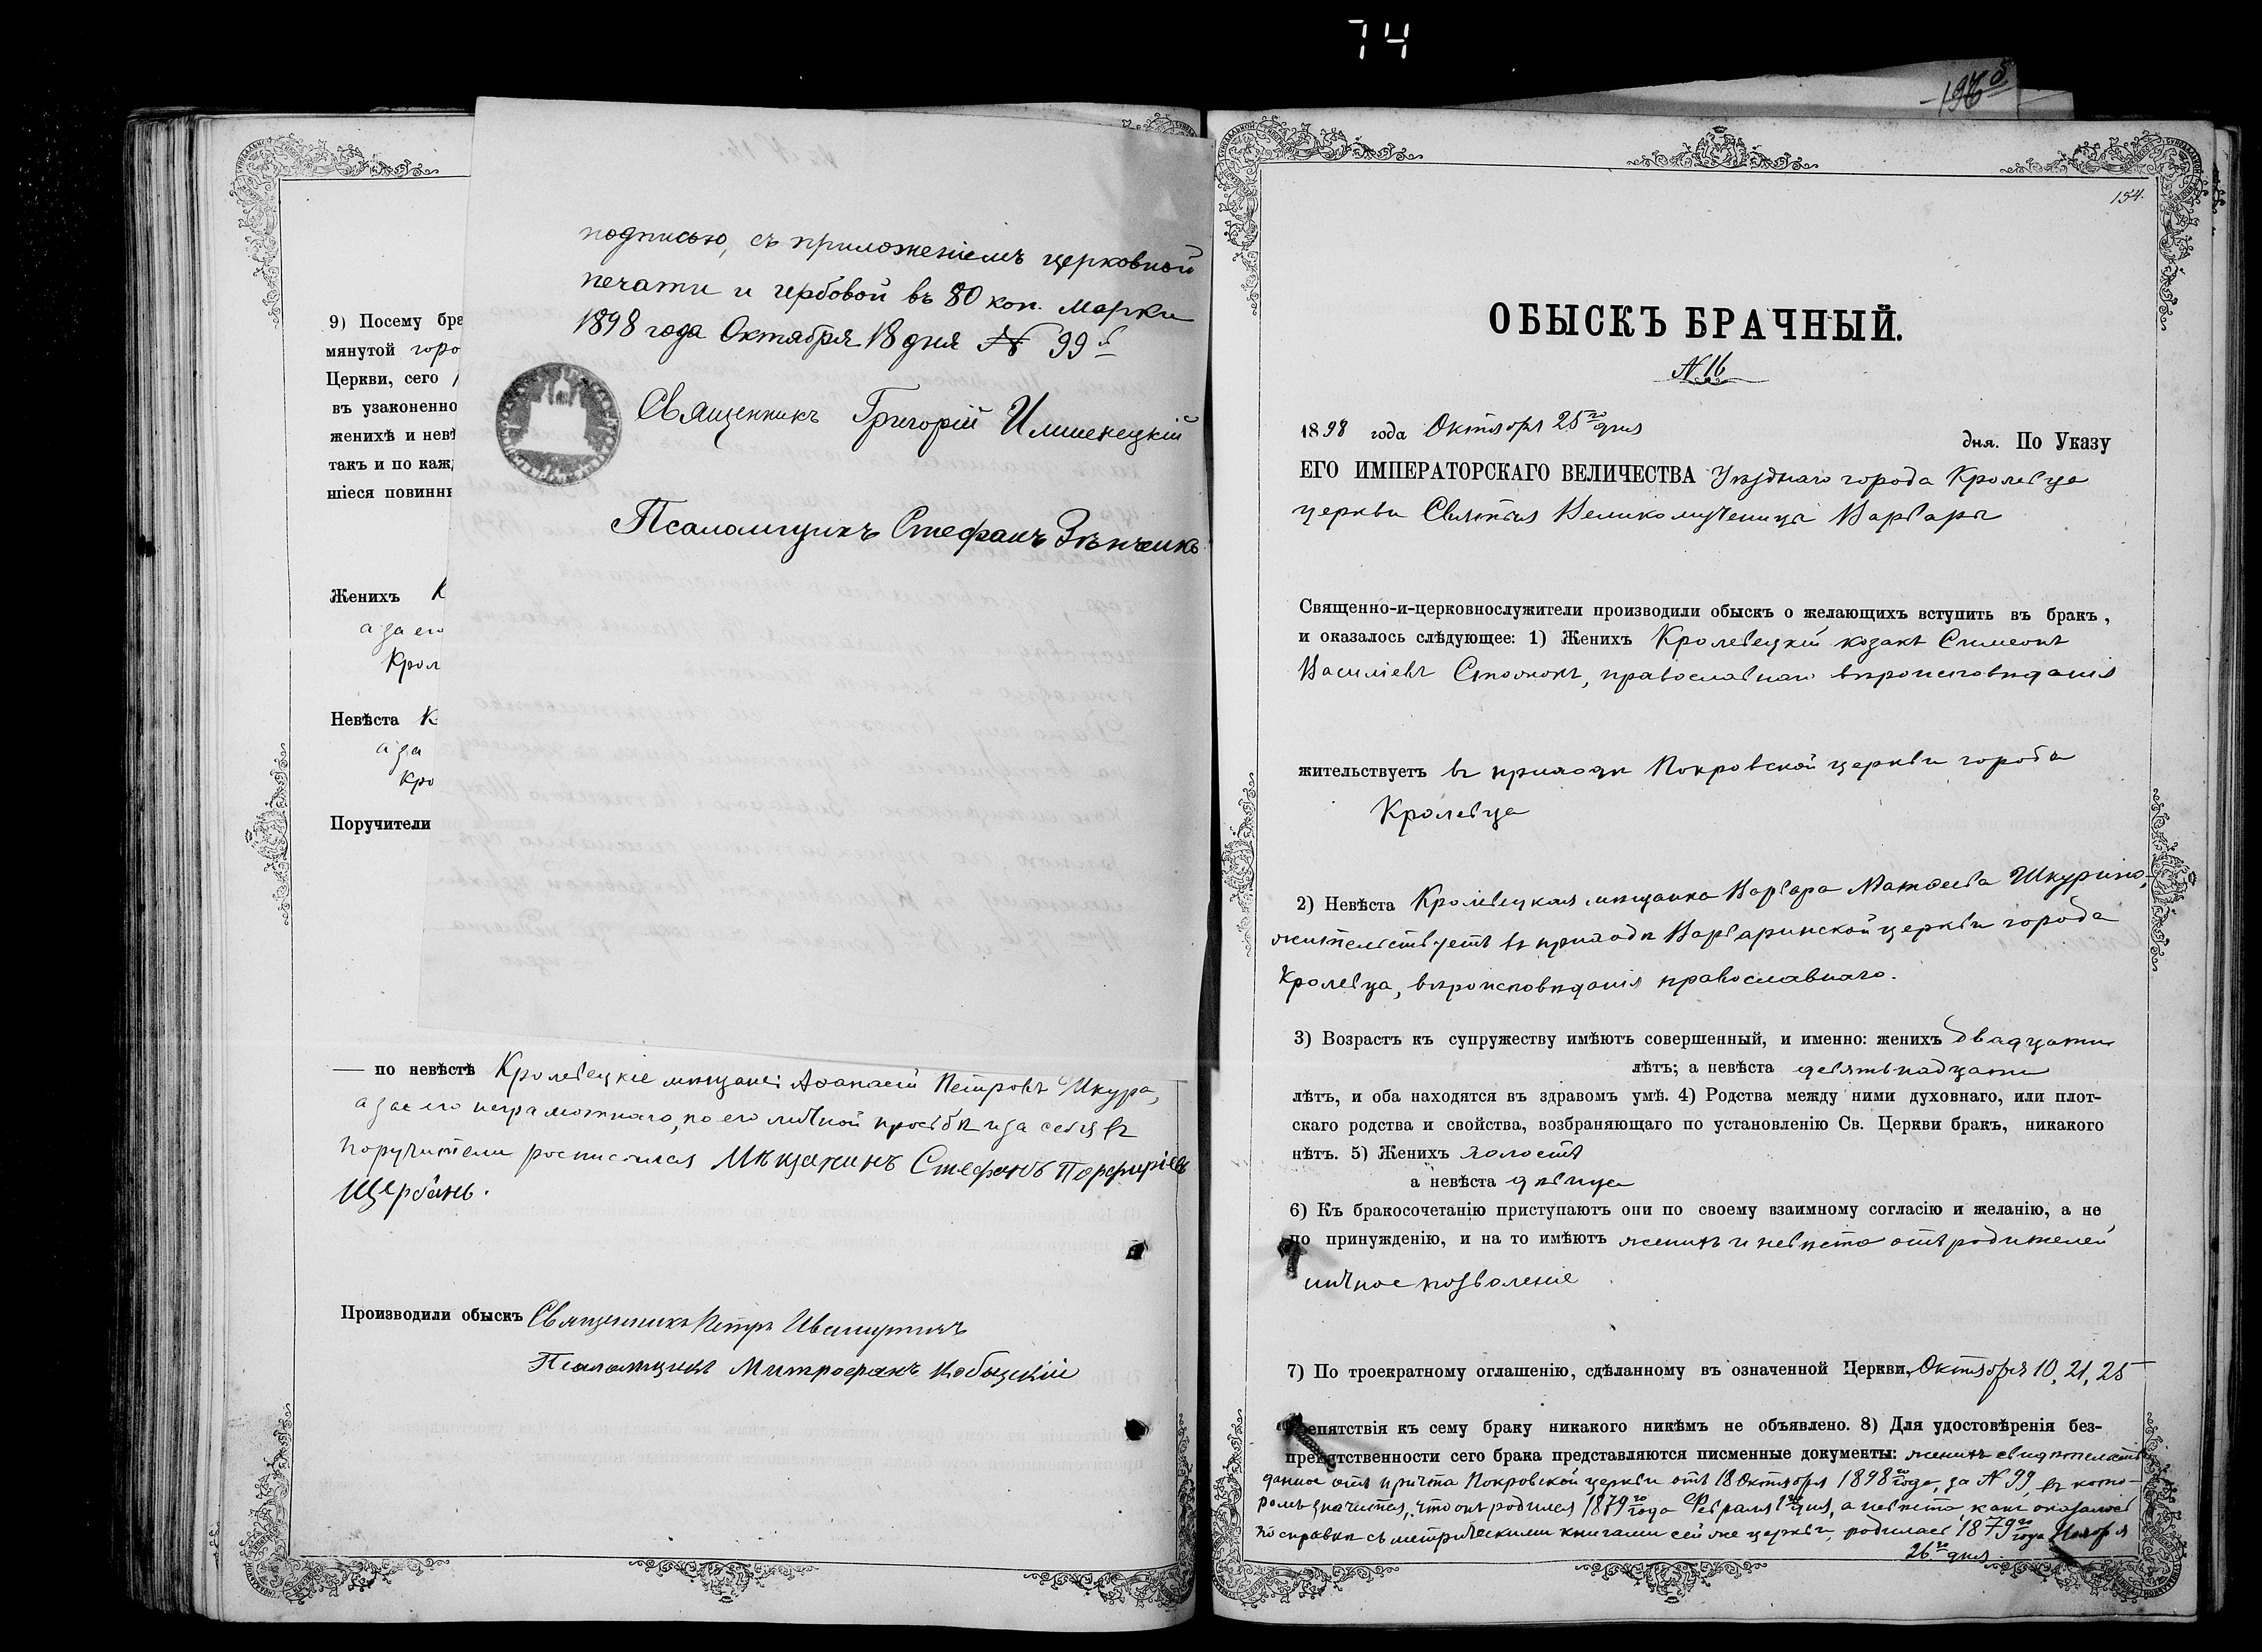 74
154.
подписью, съ приложеніемъ церковной
печати и гербовой въ 80 коп. марки
1898 года Октября 18 дня № 99
Священникъ Григорій
Псаломщикъ Стефанъ Зѣнченко
9) Посему бра
мянутой горо
Церкви, сего
въ узаконенно
женихѣ и невѣ
такъ и по каж
шіеся повинн
Женихъ К
а за его
Крол
Невѣста К
а за
кро
Поручители
— по невѣстѣ Кролевецкіе мѣщане: Аѳанасій Петровъ Шкура,
а за его неграмотнаго, по его личной просьбѣ и за себя въ
поручители росписался Мѣщанинъ Стефанъ Порфиріевъ
Щербань.
Производили обыскъ Священникъ Петръ
Псаломщикъ Митрофанъ
ОБЫСКЪ БРАЧНЫЙ.
№ 16
1898 года Октября 25го дня дня. По Указу
ЕГО ИМПЕРАТОРСКАГО ВЕЛИЧЕСТВА Уѣзднаго города Кролевца
церкви Святыя Великомученицы Варвары
Священно-и-церковнослужители производили обыскъ о желающихъ вступить въ бракъ,
и оказалось слѣдующее: 1) Женихъ Кролевецкій козакъ Симеонъ
Василіевъ православнаго вѣроисповѣданія
жительствуетъ въ приходѣ Покровской церкви города
Кролевца
2) Невѣста Кролевецкая мѣщанка Варвара Матѳеева
жительствуетъ въ приходѣ Варваринской церкви города
Кролевца, вѣроисповѣданія православнаго.
3) Возрастъ къ супружеству имѣютъ совершенный, и именно: женихъ двадцати
лѣтъ; а невѣста девятнадцати
лѣтъ, и оба находятся въ здравомъ умѣ. 4) Родства между ними духовнаго, или плот-
скаго родства и свойства, возбраняющаго по установленію Св. Церкви бракъ, никакого
нѣтъ. 5) Женихъ холостъ
а невѣста дѣвица
6) Къ бракосочетанію приступаютъ они по своему взаимному согласію и желанію, а не
по принужденію, и на то имѣютъ женихъ и невѣста отъ родителей
личное позволеніе
7) По троекратному оглашенію, сдѣланному въ означенной Церкви, Октября 10, 21, 25
препятствія къ сему браку никакого никѣмъ не объявлено. 8) Для удостовѣренія без-
препятственности сего брака представляются писменные документы: женихъ свидѣтельство
данное отъ причта Покровской церкви отъ 18 Октября 1898го года, за № 99, въ кото-
ромъ значится, что онъ родился 1879го года Февраля 1го дня, а невѣста какъ оказалось
по справкѣ съ метрическими книгами сей же церкви, родилась 1879го года Ноября
26го дня